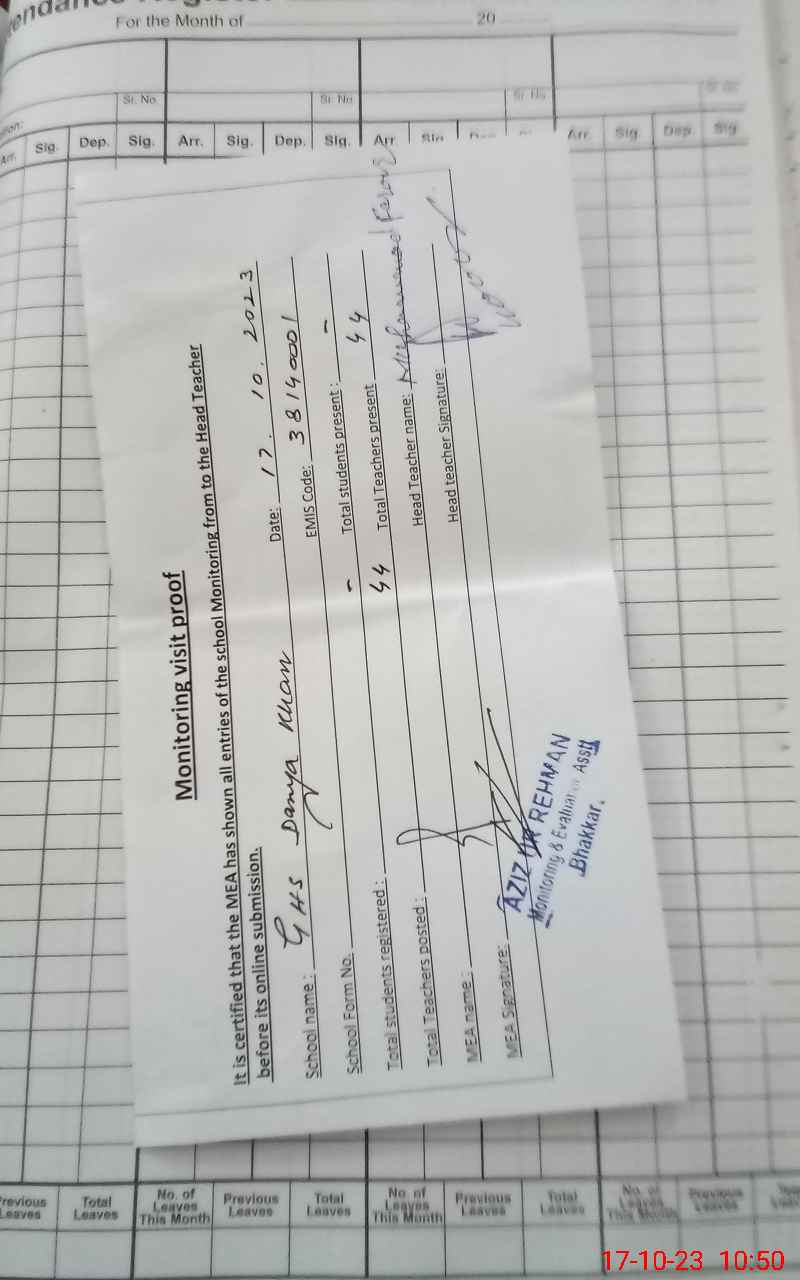 For the Month of 20
Sr. No. Sr. No Sr. No
Arr. Sig. Dep. Sig. Arr. Sig. Dep. Sig. Arr Arr. Sig. Dep. Sig
Monitoring visit proof
It is certified that the MEA has shown all entries of the school Monitoring from to the Head Teacher
before its online submission.
School name : GHS Danya Khan Date: 17. 10. 2023
School Form No. EMIS Code: 38140001
Total students registered : - Total students present : -
Total Teachers posted : 44 Total Teachers present 44
MEA name : Head Teacher name: Muhammad Farooq
MEA Signature: Head teacher Signature:
AZIZ UR REHMAN
Monitoring & Evaluation Asstt
Bhakkar.
Previous Leaves Total Leaves No. of Leaves This Month Previous Leaves Total Leaves No. of Leaves This Month Previous Leaves Total Leaves No. of Leaves This Month Previous Leaves
17-10-23 10:50